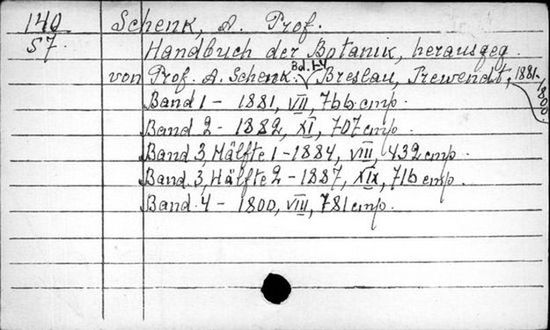 140 Schenk, A. Prof.
S7. Handbuch der Botanik, herausgeg.
von Prof. A. Schenk. Bd. 1-4 Breslau, Trewendt, 1881-1800
Band 1 - 1881, VII, 766 стр.
Band 2 - 1882, XI, 707 стр.
Band 3, Hälfte 1 - 1884, VIII, 432 стр.
Band 3, Hälfte 2 - 1887, XIX, 716 стр.
Band 4 - 1800, VIII, 781 стр.